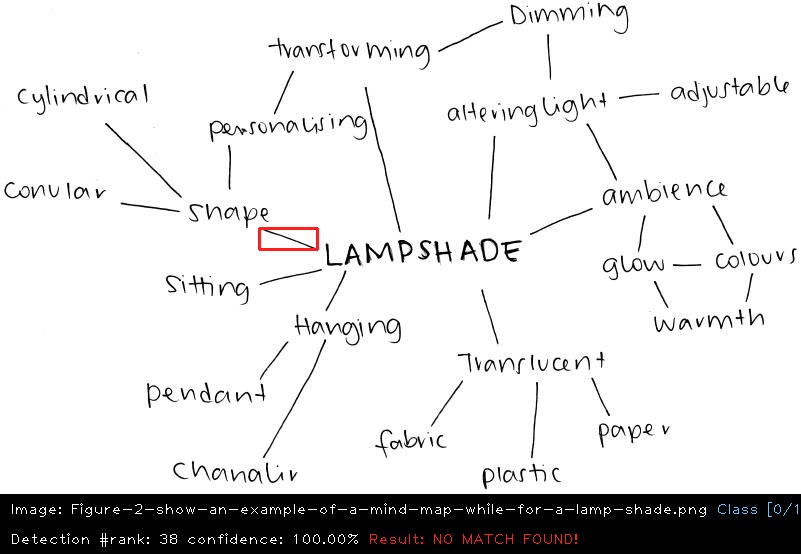 Dimming
transforming
cylindrical
adjustable
alteringlight
personalising
conular
ambience
shape
LAMPSHADE
glow
colours
sitting
warmth
Hanging
Translucent
pendant
fabric
paper
chanaliv
plastic
Image: Figure-2-show-an-example-of-a-mind-map-while-for-a-lamp-shade.png Class [0/1
Detection #rank: 38 confidence: 100.00% Result: NO MATCH FOUND!